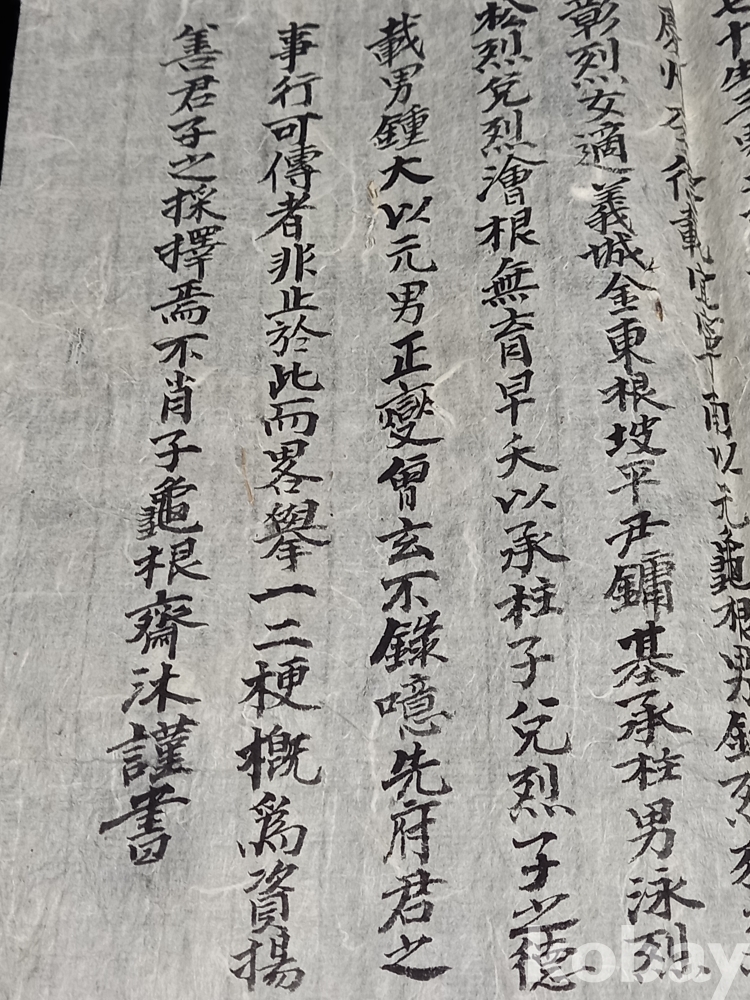 七十
慶州 載寧 男以元龜根男鍾烈
彰烈女適義城金東根坡平尹鏞基承柱男泳烈
松烈兌烈澮根無育早夭以承柱子兌烈子之德
載男鍾大以元男正變曾玄不錄噫先府君之
事行可傳者非止於此而畧擧一二梗槪爲資揚
善君子之採擇焉不肖子龜根齋沐謹書
kobay